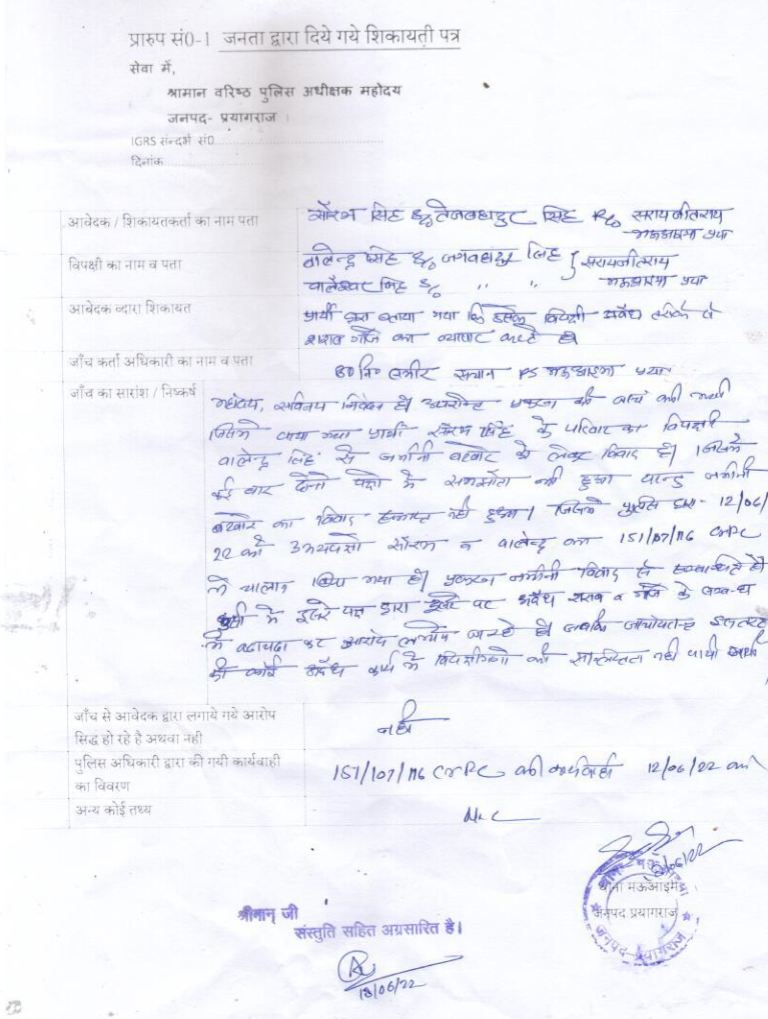 प्रारुप सं0-1 जनता द्वारा दिये गये शिकायती पत्र
सेवा में,
श्रीमान वरिष्ठ पुलिस अधीक्षक महोदय
जनपद- प्रयागराज ।
IGRS सन्दर्भ सं0
दिनांक
आवेदक / शिकायतकर्ता का नाम पता
सौरभ सिंह S/o तेजबहादुर सिंह R/o सरायजीतराय
मऊआइमा प्रया
विपक्षी का नाम व पता
बालेन्द्र सिंह S/o जगबहादुर सिंह } सरायजीतराय
सिंह S/o ,, ,, मऊआइमा प्रया
आबेदक व्दारा शिकायत
प्रार्थी द्वारा बताया गया कि इसके विपक्षी अवैध तरीके से
शराब गाँजे का व्यापार करते है
जाँच कर्ता अधिकारी का नाम व पता
उ0नि0 PS मऊआइमा प्रया
जाँच का सारांश / निष्कर्ष
महोदय, सविनय निवेदन है उपरोक्त प्रकरण की जांच की गयी
जिसमे पाया गया प्रार्थी सौरभ सिंह के परिवार का विपक्षी
बालेन्द्र सिंह से जमीनी बटवारे को लेकर विवाद है। जिसमे
कई बार दोनो पक्षो मे समझौता भी हुआ परन्तु जमीनी
बटवारे का विवाद समाप्त नही हुआ। जिसमे पुलिस द्वारा- 12/06/
22 को उभयपक्षो सौरभ व बालेन्द्र का 151/107/116 CrPC
मे चालान किया गया है। प्रकरण जमीनी विवाद से सम्बन्धित है
इसी मे दूसरे पक्ष द्वारा दूसरे पर अवैध शराब व गाँजे के सम्बन्ध
मे बढाचढा कर आरोप लगाये जाते है। जबकि इस तरह
की कोई अवैध कार्य मे विपक्षीगणो की संलिप्तता नही पायी गयी
जाँच से आवेदक द्वारा लगाये गये आरोप
सिद्ध हो रहे है अथवा नही
नही
पुलिस अधिकारी द्वारा की गयी कार्यवाही
का विवरण
151/107/116 CrPC की कार्यवाही 12/06/22 को
अन्य कोई तथ्य
NIL
थाना मऊआइमा
जनपद प्रयागराज
जनपद-प्रयागराज
श्रीमान् जी
संस्तुति सहित अग्रसारित है।
18/06/22